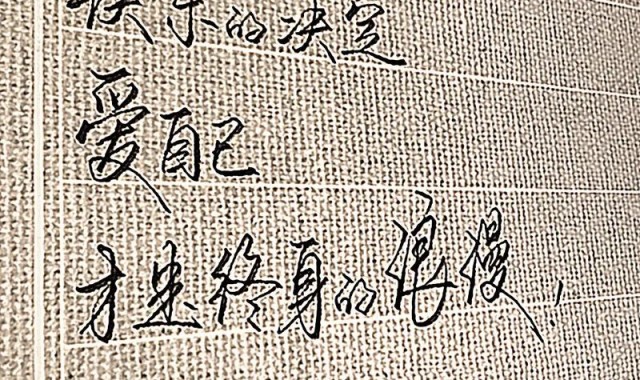 快乐的决定
爱自己
才是终身的浪漫！